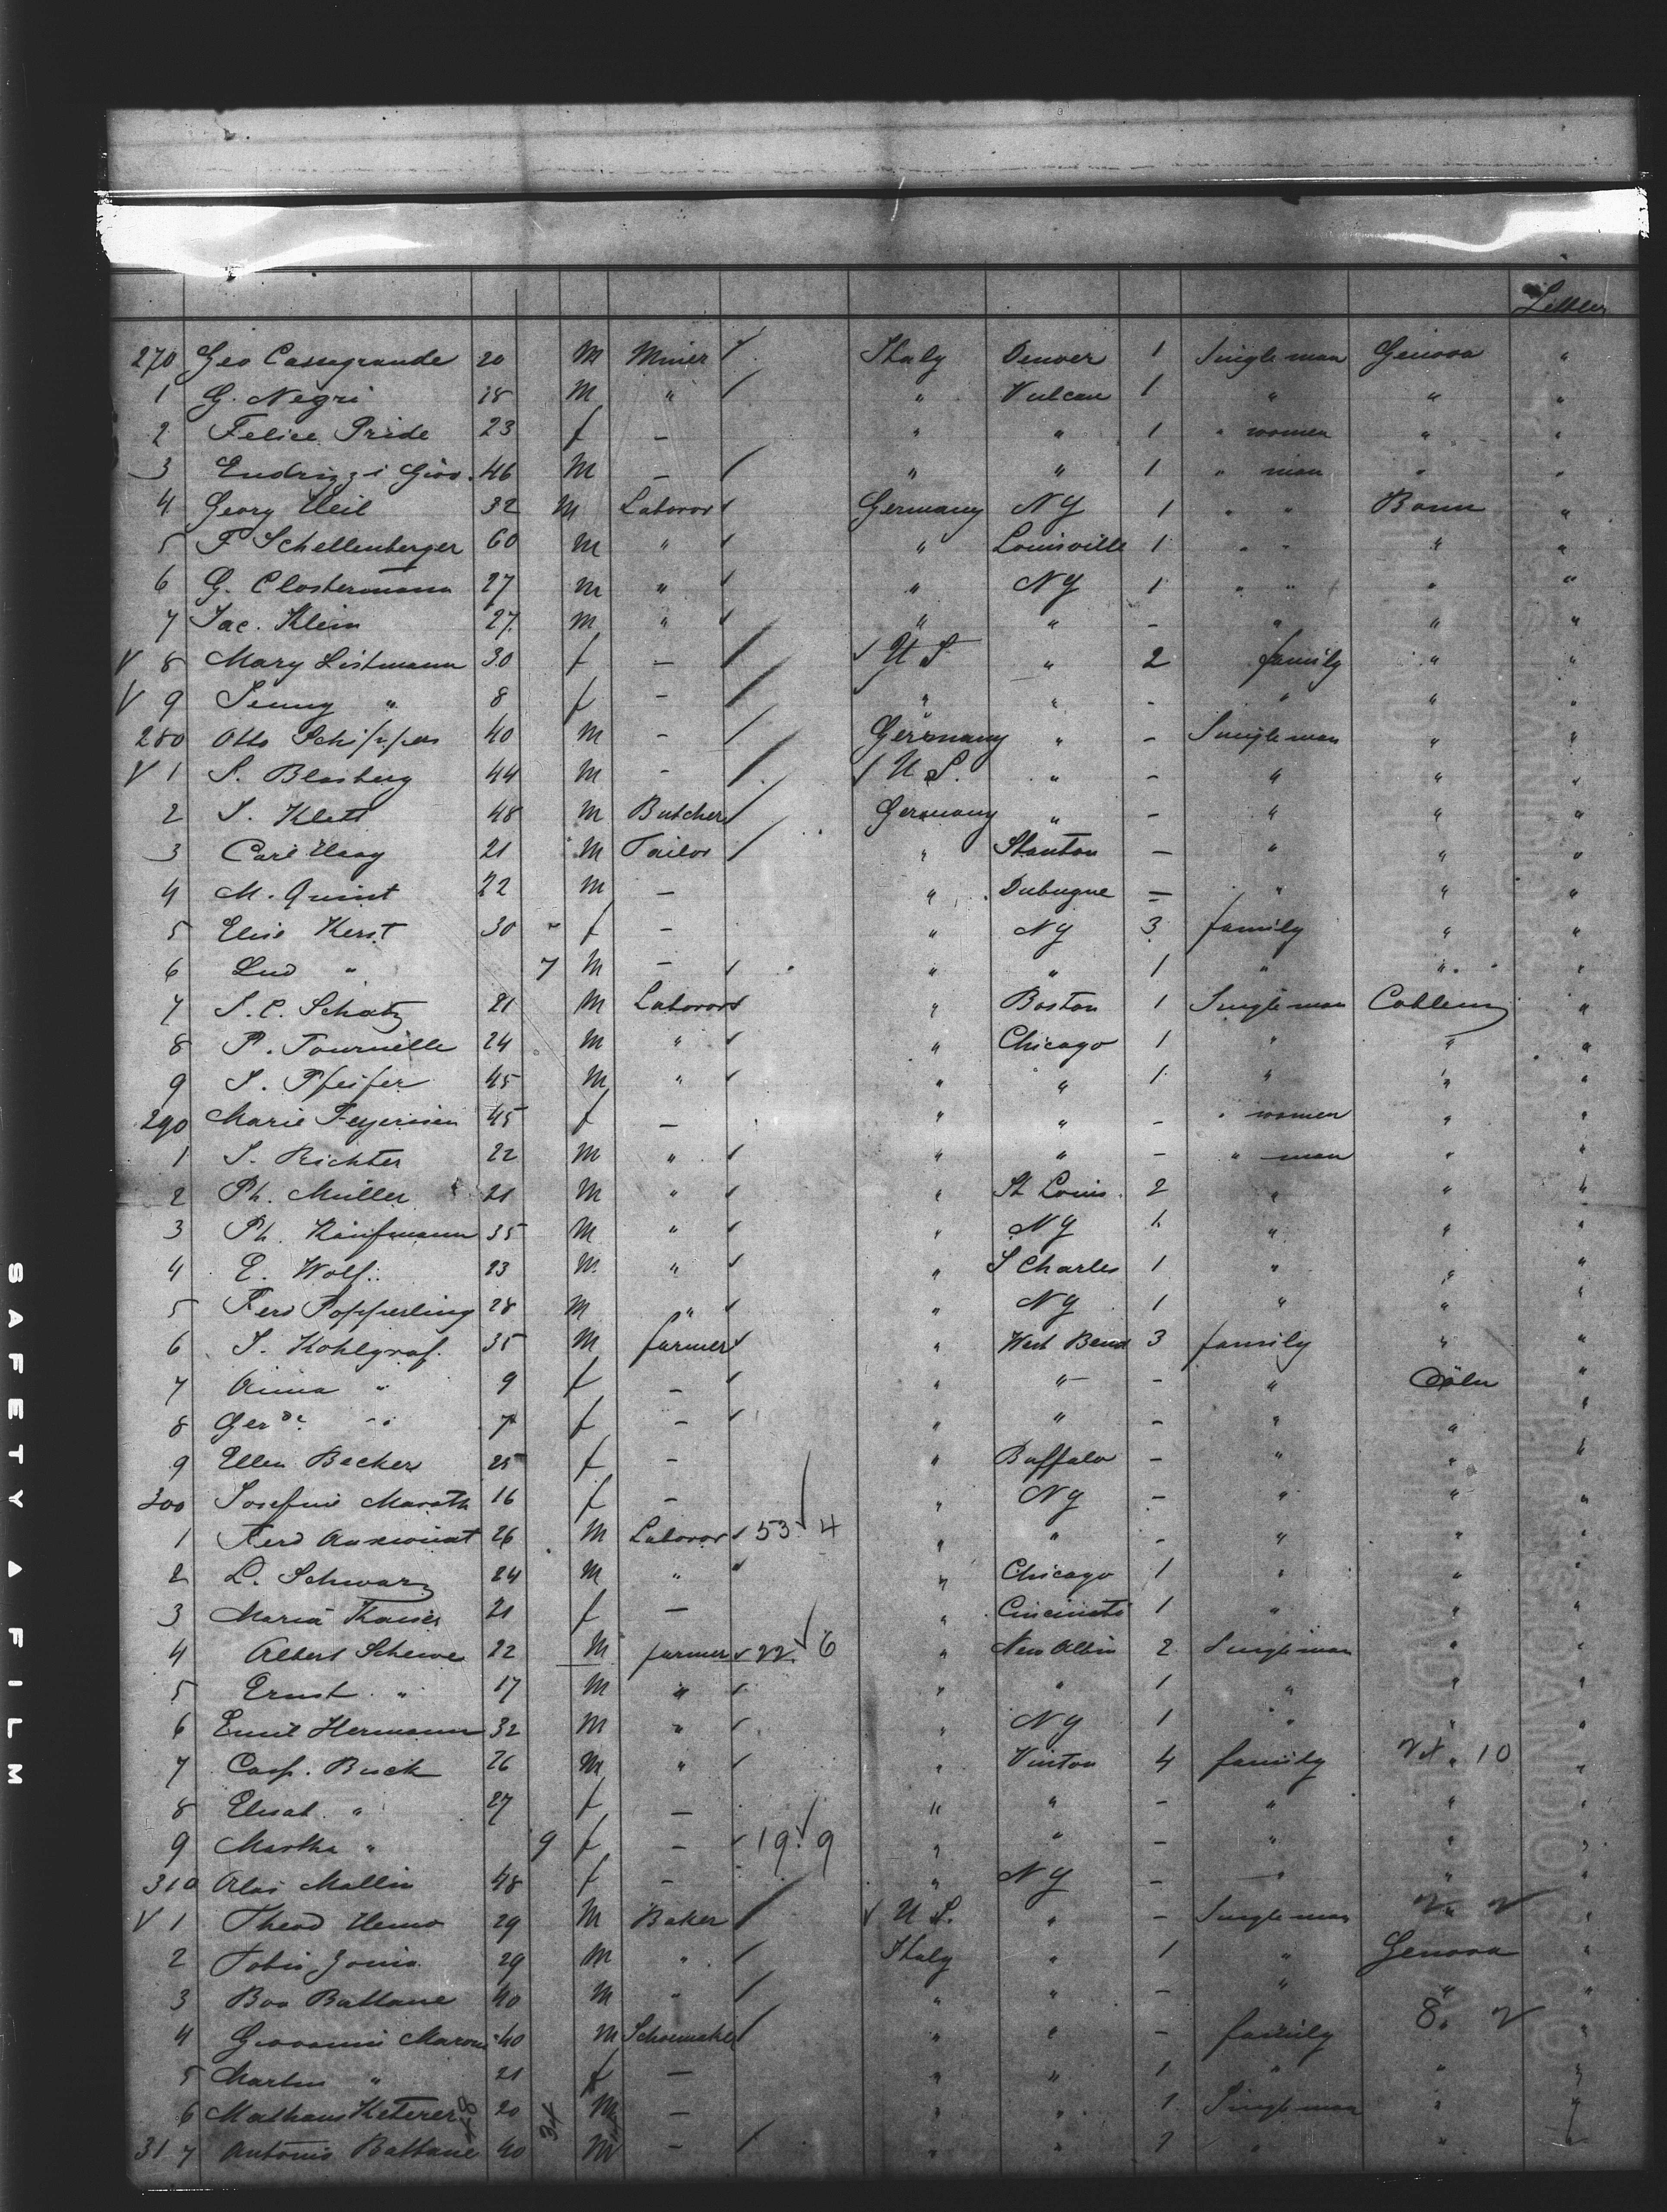 Settler
270 Geo Casagrande 20 M Miner Italy Denver 1 Single man Genova "
1 G. Negri 28 M " " Vulcan 1 " " "
2 Felice Pride 23 f — " " 1 " women " "
3 Endrizzi Giov. 46 M — " " 1 " man " "
4 Georg Heil 32 M Laboror Germany NY 1 " " Bonn "
5 P Schellenberger 60 M " " Louisville 1 " " " "
6 G. Clostermann 27 M " " NY 1 " " " "
7 Jac. Klein 27 M " " " - " " "
V 8 Mary Listmann 30 f — U S " 2 family " "
V 9 Jenny " 8 f — " " - " " "
280 Otto Schippers 40 M — Germany " - Single man " "
V 1 S. Blasberg 44 M — U S. " - " " "
2 J. Klett 48 M Butcher Germany " - " " "
3 Carl Haag 21 M Tailor " Stanton — " " "
4 M. Quint 22 M — " Dubuque — " " "
5 Elise Kerst 30 f — " NY 3 family " "
6 Lud " 7 M — " " 1 " " "
7 J. C. Schatz 21 M Laboror " Boston 1 Single man Coblenz "
8 P. Tournelle 24 M " " Chicago 1 " " "
9 J. Pfeifer 45 M " " " 1 " " "
290 Marie Feyerisen 45 f — " " - " women " "
1 J. Richter 22 M " " " - " man " "
2 Ph. Müller 21 M " " St Louis 2 " " "
3 Ph. Kaufmann 35 M " " NY 1 " " "
4 E. Wolf 23 M " " S Charles 1 " " "
5 Ferd Popperling 28 M " " NY 1 " " "
6 J. Kohlgraf 35 M farmer " West Bend 3 family " "
7 Anna " 9 f — " " - " Cöln "
8 Ger " 7 f — " " - " " "
9 Ellen Becker 25 f — " Buffalo - " " "
300 Josefine Marath 16 f — " NY - " " "
1 Ferd 26 M Laboror 53 4 " " - " " "
2 L. Schwarz 24 M " " Chicago 1 " " "
3 Maria 21 f — " Cincinati 1 " " "
4 Albert Schewe 22 M farmer 22 6 " New Albin 2 Single man " "
5 Ernst " 17 M " " " 1 " " "
6 Emil Hermann 32 M " " NY 1 " " "
7 Casp. Buck 26 M " " Vinton 4 family " 10 "
8 Elisab. " 27 f — " " - " " "
9 Martha " 9 f — 19 9 " " - " " "
310 Mallin 48 f — " NY - " " "
V 1 Theod 29 M Baker U S. " - Single man " "
2 29 M " Italy " 1 " Genova "
3 Battane 40 M " " " - " " "
4 Giovanni 40 M Schoemaker " " - family 8 "
5 21 f — " " 1 " " "
6 Mathaus Keterer 20 M — " " 1 Single man " "
317 Antonio Battane 40 M — " " 1 " " "
SAFETY FILM